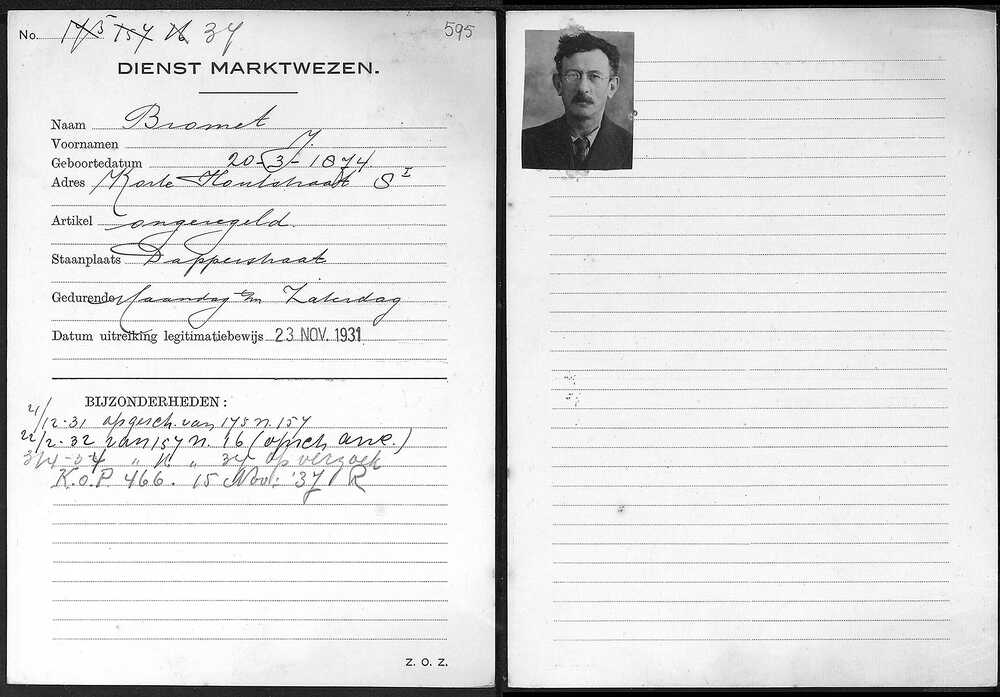 No. 175 157 16 37
595
DIENST MARKTWEZEN.
Naam Bromet
Voornamen J.
Geboortedatum 20-3-1874
Adres Korte Houtstraat 8 I
Artikel ongeregeld
Staanplaats Dapperstraat
Gedurende Maandag t/m Zaterdag
Datum uitreiking legitimatiebewijs 23 NOV. 1931
BIJZONDERHEDEN:
21/12-31 opgesch. van 175 n. 157
22/2-32 van 157 n. 16 (opsch anc.)
3/4-34 " 16 " 37 op verzoek
K.O.P. 466. 15 Nov: '37 R
Z. O. Z.